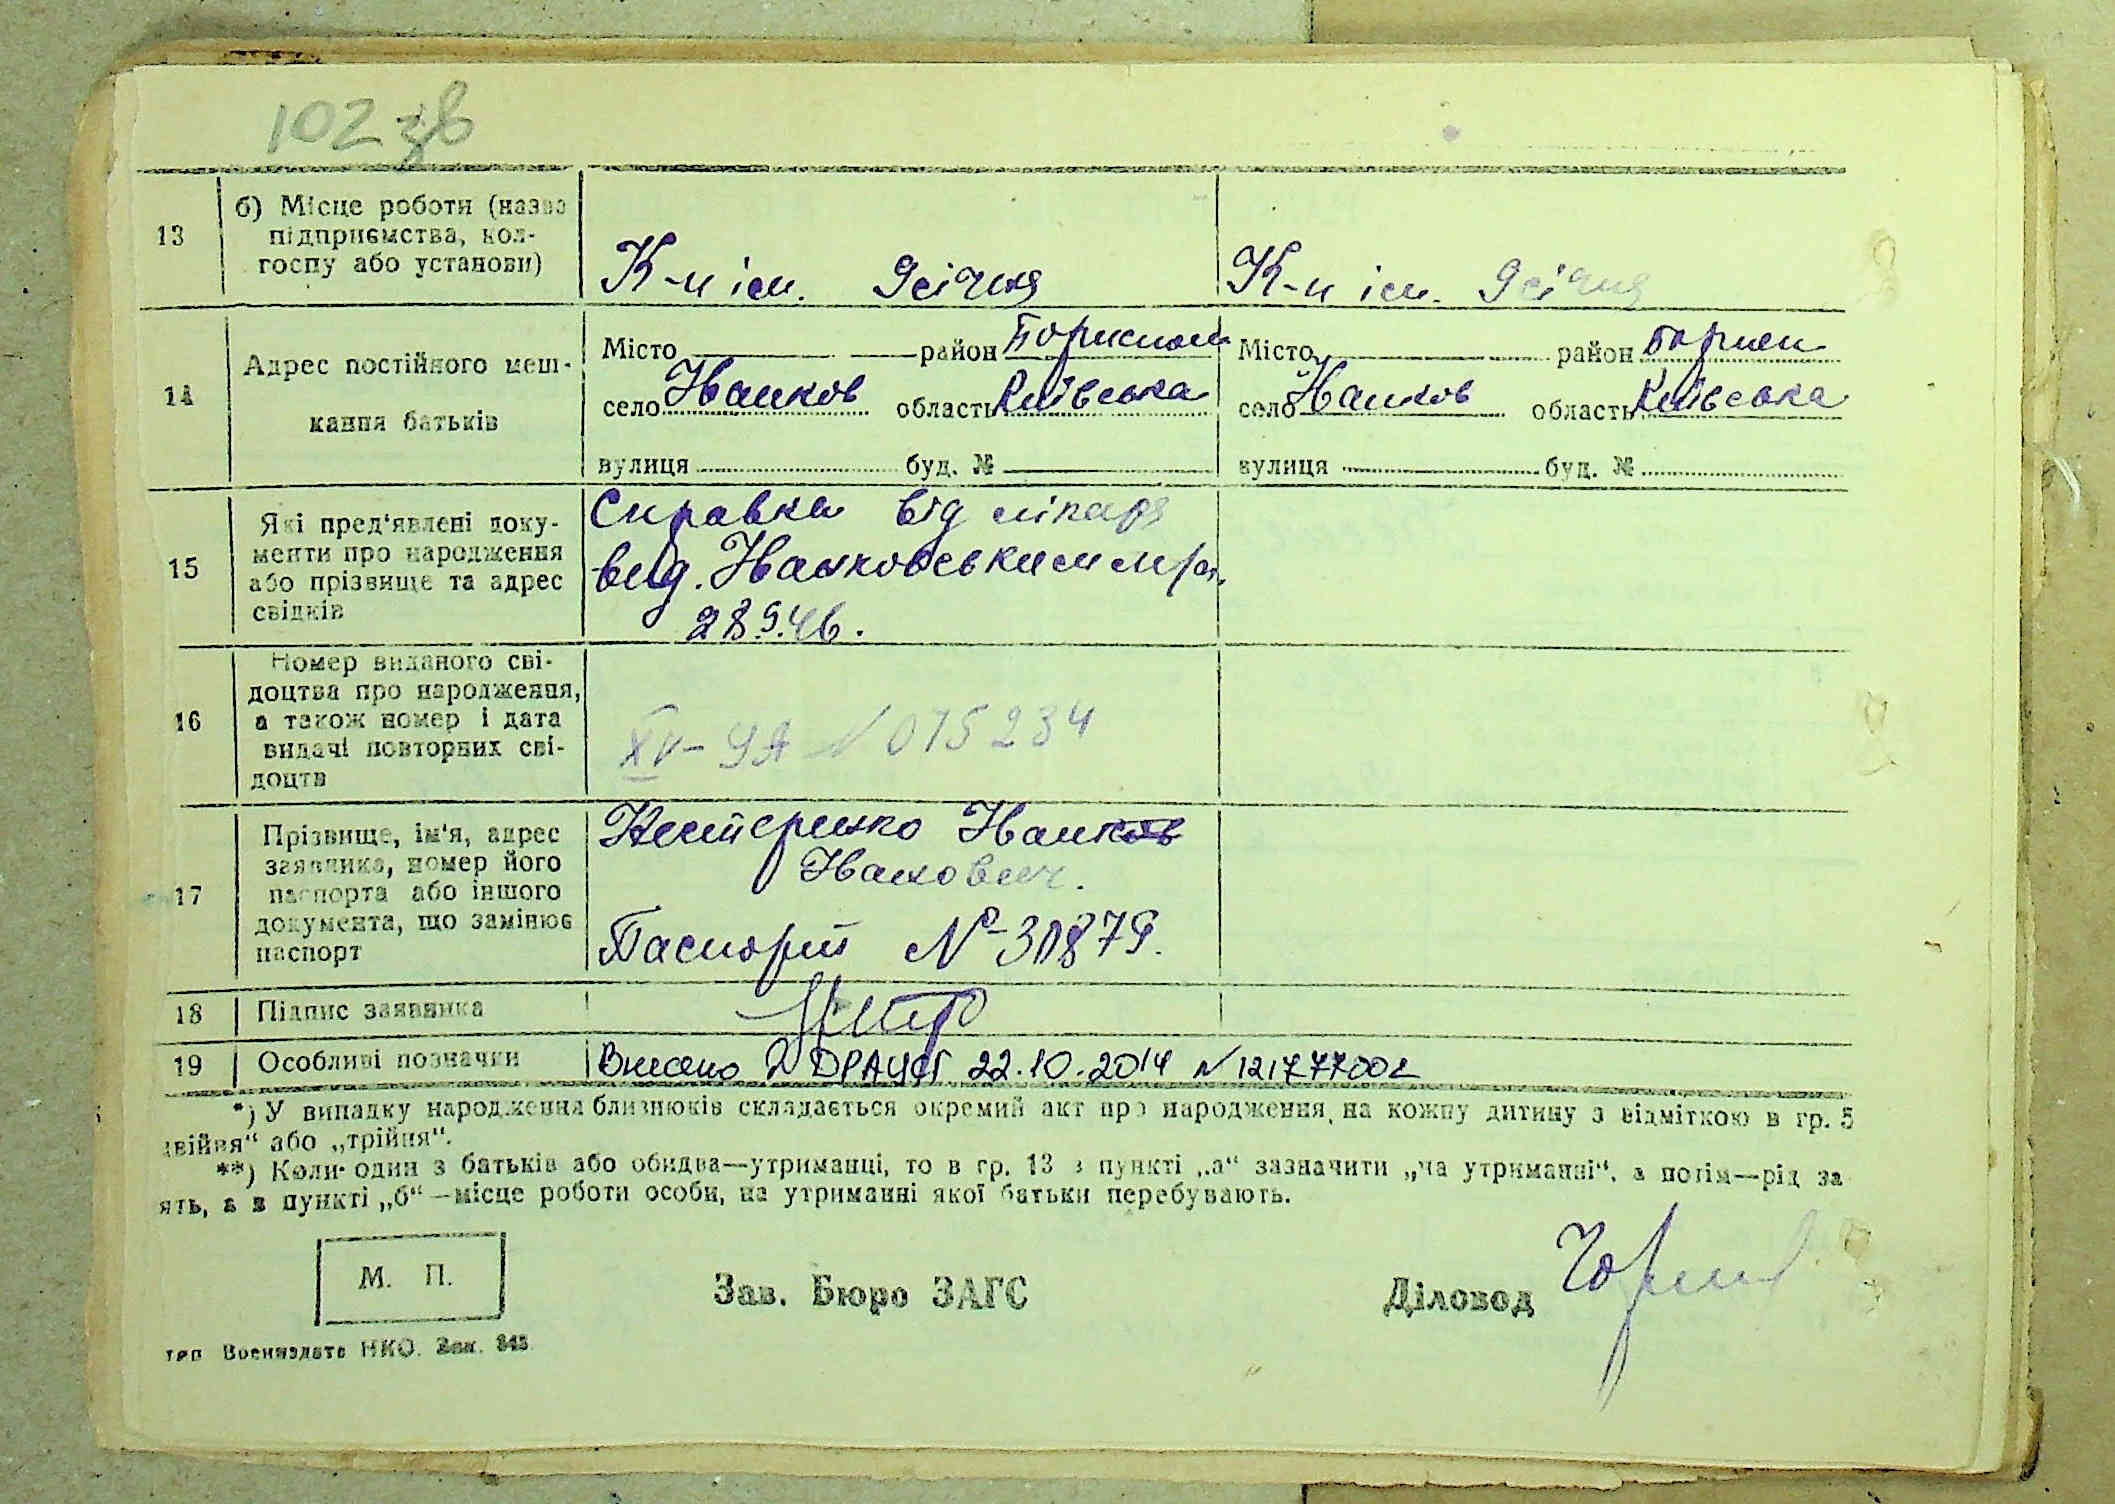 102 зв
13
б) Місце роботи (назва
підприємства, кол-
госпу або установи)
К-п ім. 9 січня
К-п ім. 9 січня
14
Адрес постійного меш-
кання батьків
Місто район Бориспол
село Іванков область Київська
вулиця буд. №
Місто район Борисп
село Іванков область Київська
вулиця буд. №
15
Які пред'явлені доку-
менти про народження
або прізвище та адрес
свідків
Справка від лікаря
вид. Іванковським
28.9.46.
16
Номер виданого сві-
доцтва про народження,
а також номер і дата
видачі повторних сві-
доцтв
XV-УЯ N 075234
17
Прізвище, ім'я, адрес
заявника, номер його
паспорта або іншого
документа, що замінює
паспорт
Нестеренко Іван
Іванович.
Паспорт № 30879.
18
Підпис заявника
19
Особливі позначки
Внесено ДРАЦСГ 22.10.2014 N 12177700
*) У випадку народження близнюків складається окремий акт про народження на кожну дитину з відміткою в гр. 5
двійня" або „трійня".
**) Коли один з батьків або обидва—утриманці, то в гр. 13 в пункті „а" зазначити „на утриманні", а потім—рід за
ять, а в пункті „б"—місце роботи особи, на утриманні якої батьки перебувають.
М. П.
Зав. Бюро ЗАГС
Діловод
тип Воениздата НКО. Зак. 845